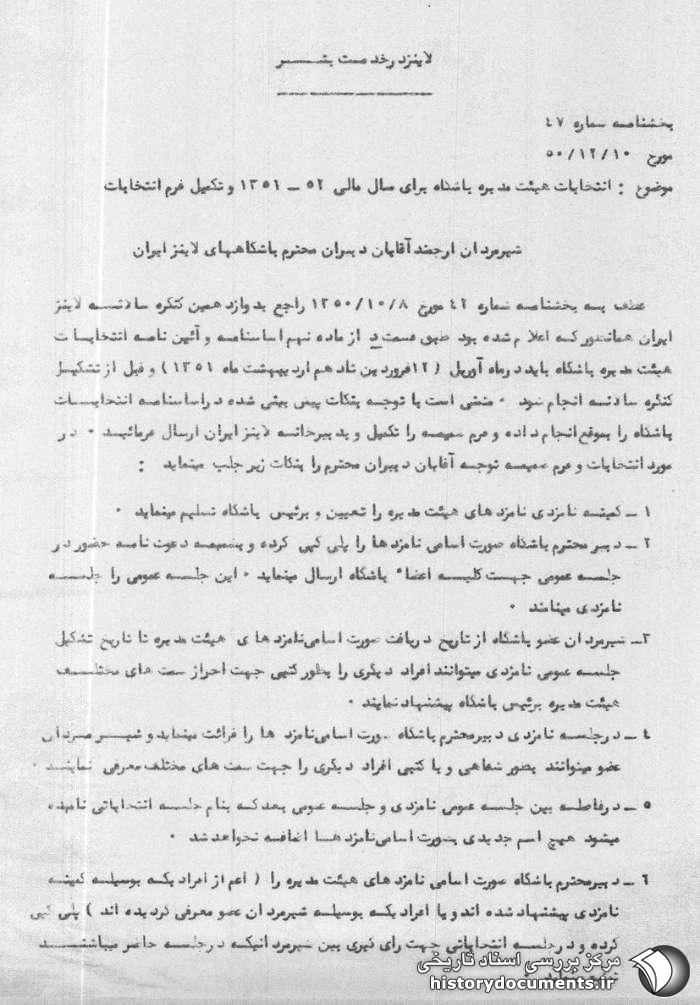 لاینزد رخد مت بشـــــر
بخشنامه شماره ٤٧
مورخ ٥٠/١٢/١٠
موضوع : انتخابات هیئت مدیره باشگاه برای سال مالی ٥٢ ــ ١٣٥١ و تکمیل فرم انتخابات
شیرمردان ارجمند آقایان دبیران محترم باشگاههای لاینز ایران
عطف به بخشنامه شماره ٤٢ مورخ ١٣٥٠/١٠/٨ راجع بدوازدهمین کنگره سالانه لاینز
ایران همانطور که اعلام شده بود طبق قسمت د از ماده نهم اساسنامه و آئین نامه انتخابات
هیئت مدیره باشگاه باید در ماه آوریل ( ١٢ فروردین تا دهم اردیبهشت ماه ١٣٥١ ) و قبل از تشکیل
کنگره سالانه انجام شود ٠ متمنی است با توجه بنکات پیش بینی شده در اساسنامه انتخابات
باشگاه را بموقع انجام داده و فرم ضمیمه را تکمیل و بدبیرخانه لاینز ایران ارسال فرمائید ٠ در
مورد انتخابات و فرم ضمیمه توجه آقایان دبیران محترم را بنکات زیر جلب مینماید :
١ ــ کمیته نامزدی نامزدهای هیئت مدیره را تعیین و برئیس باشگاه تسلیم مینماید ٠
٢ ــ دبیر محترم باشگاه صورت اسامی نامزدها را پلی کپی کرده و بضمیمه دعوت نامه حضور در
جلسه عمومی جهت کلیه اعضاء باشگاه ارسال مینماید ٠ این جلسه عمومی را جلسه
نامزدی مینامند ٠
٣ــ شیرمردان عضو باشگاه از تاریخ دریافت صورت اسامی نامزدهای هیئت مدیره تا تاریخ تشکیل
جلسه عمومی نامزدی میتوانند افراد دیگری را بطور کتبی جهت احراز سمت های مختلف
هیئت مدیره برئیس باشگاه پیشنهاد نمایند ٠
٤ ــ در جلسه نامزدی دبیر محترم باشگاه صورت اسامی نامزد ها را قرائت مینماید و شیر مردان
عضو میتوانند بطور شفاهی و یا کتبی افراد دیگری را جهت سمت های مختلف معرفی نمایند ٠
٥ ــ در فاصله بین جلسه عمومی نامزدی و جلسه عمومی بعد که بنام جلسه انتخاباتی نامیده
میشود هیچ اسم جدیدی بصورت اسامی نامزد ها اضافه نخواهد شد ٠
٦ ــ دبیر محترم باشگاه صورت اسامی نامزد های هیئت مدیره را ( اعم از افرادیکه بوسیله کمیته
نامزدی پیشنهاد شده اند و یا افرادیکه بوسیله شیرمردان عضو معرفی گردیده اند ) پلی کپی
کرده و در جلسه انتخاباتی جهت رای گیری بین شیرمردانیکه در جلسه حاضر میباشند
مرکز بررسی اسناد تاریخی
historydocuments.ir